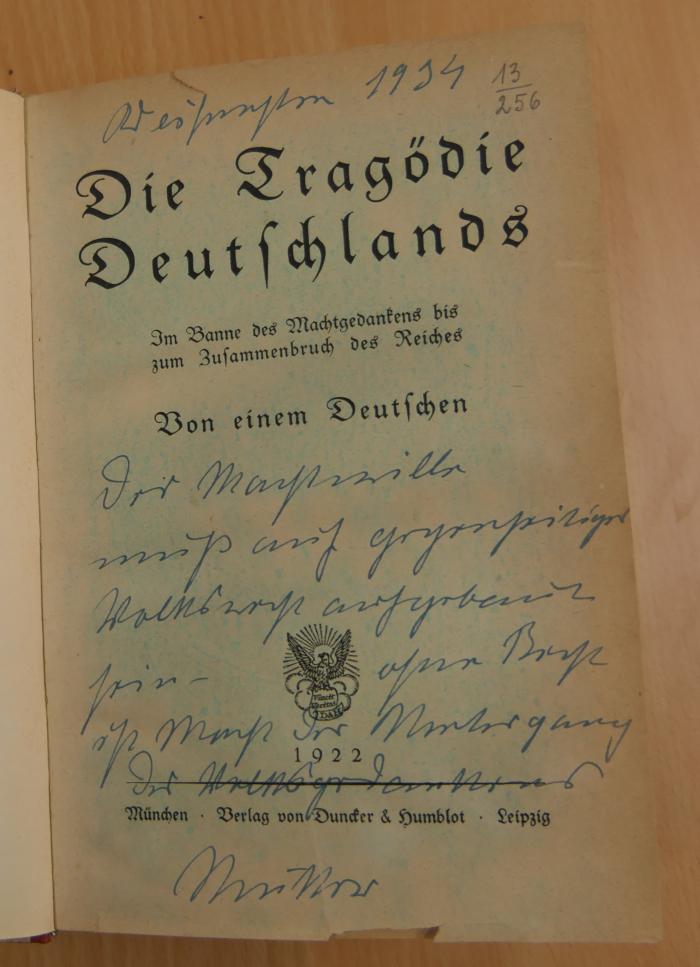 Weihnachten 1934 13/256
Die Tragödie
Deutſchlands
Im Banne des Machtgedankens bis
zum Zuſammenbruch des Reiches
Von einem Deutſchen
Der Machtwille
muß auf gegenseitiger
Volksrecht aufgebaut
sein – ohne Recht
ist Macht der Untergang
Vincit Veritas
1922
des Volksgedankens
München · Verlag von Duncker & Humblot · Leipzig